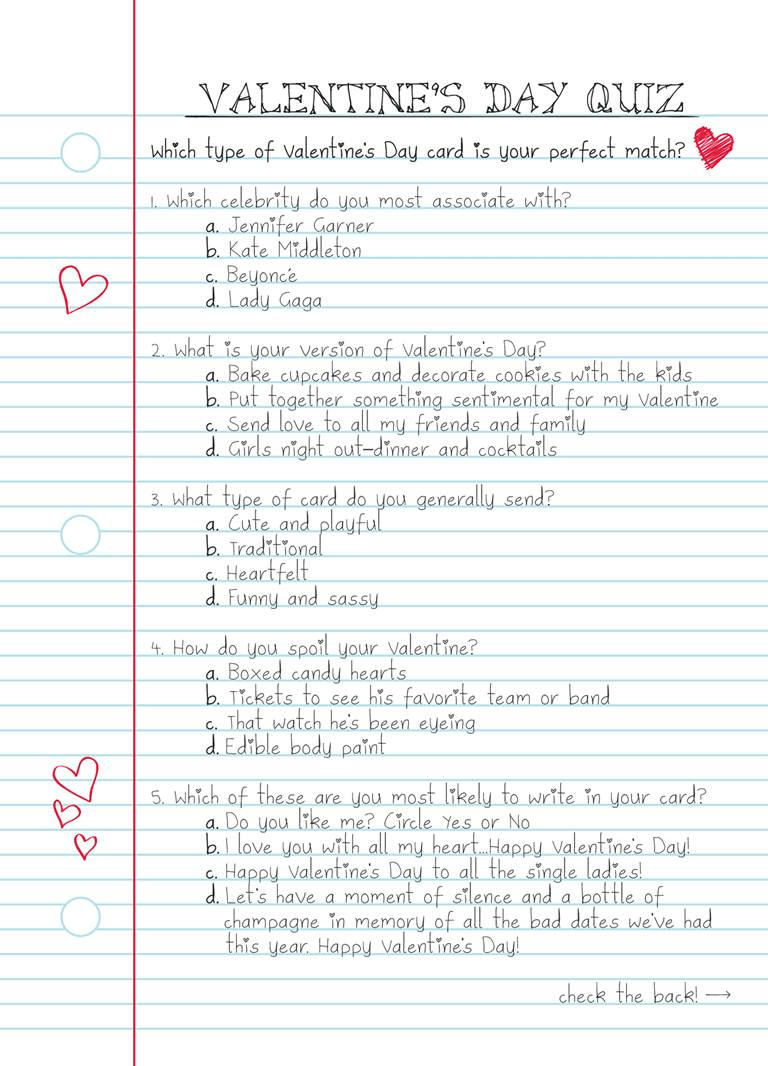 VALENTINE'S DAY QUIZ
Which type of Valentine's Day card is your perfect match?
1. Which celebrity do you most associate with?
a. Jennifer Garner
b. Kate Middleton
c. Beyoncé
d. Lady Gaga
2. What is your version of Valentine's Day?
a. Bake cupcakes and decorate cookies with the kids
b. Put together something sentimental for my Valentine
c. Send love to all my friends and family
d. Girls night out—dinner and cocktails
3. What type of card do you generally send?
a. Cute and playful
b. Traditional
c. Heartfelt
d. Funny and sassy
4. How do you spoil your Valentine?
a. Boxed candy hearts
b. Tickets to see his favorite team or band
c. That watch he's been eyeing
d. Edible body paint
5. Which of these are you most likely to write in your card?
a. Do you like me? Circle Yes or No
b. I love you with all my heart...Happy Valentine's Day!
c. Happy Valentine's Day to all the single ladies!
d. Let's have a moment of silence and a bottle of
champagne in memory of all the bad dates we've had
this year. Happy Valentine's Day!
check the back! →